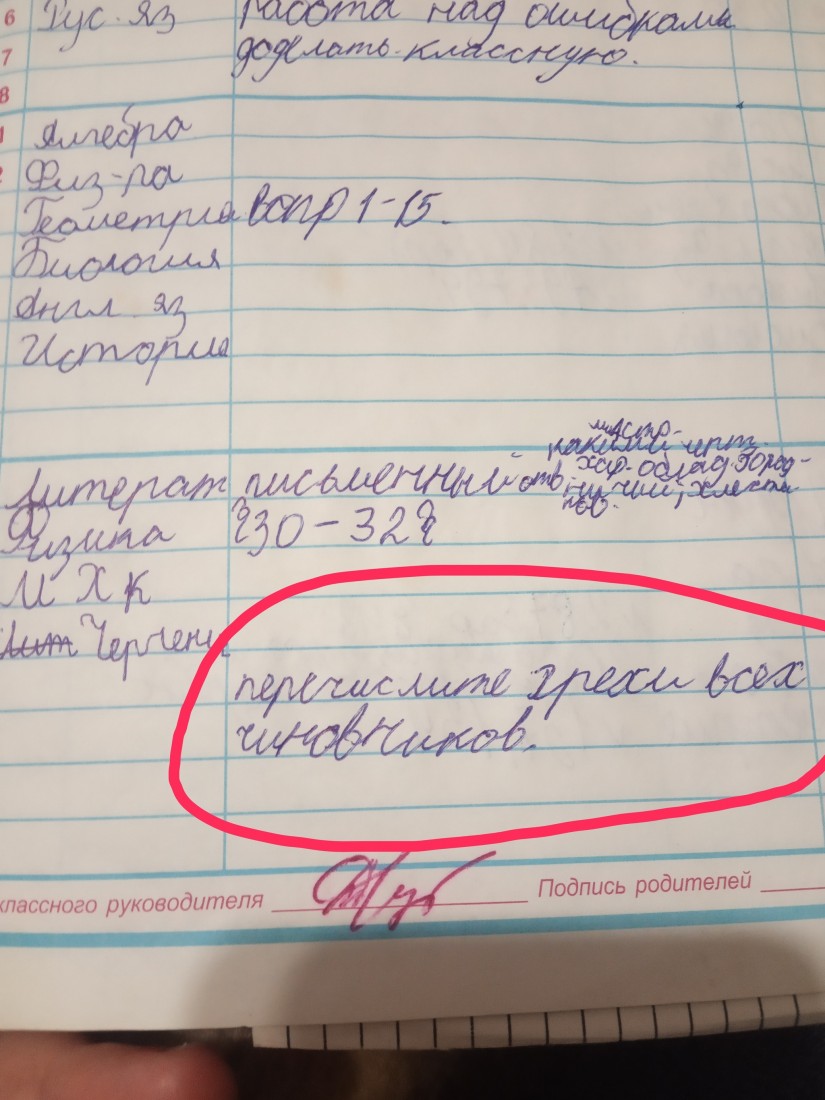 6 Рус. яз Работа над ошибками
7 доделать классную.
8
Алгебра
Физ-ра
Геометрия вопр 1-15.
Биология
Англ. яз
История
Литерат письменный отв
какими
хар. облад. Город-
ничий,
Физика §30-32§
МХК
Черчени
перечислите грехи всех
чиновников.
классного руководителя
Подпись родителей